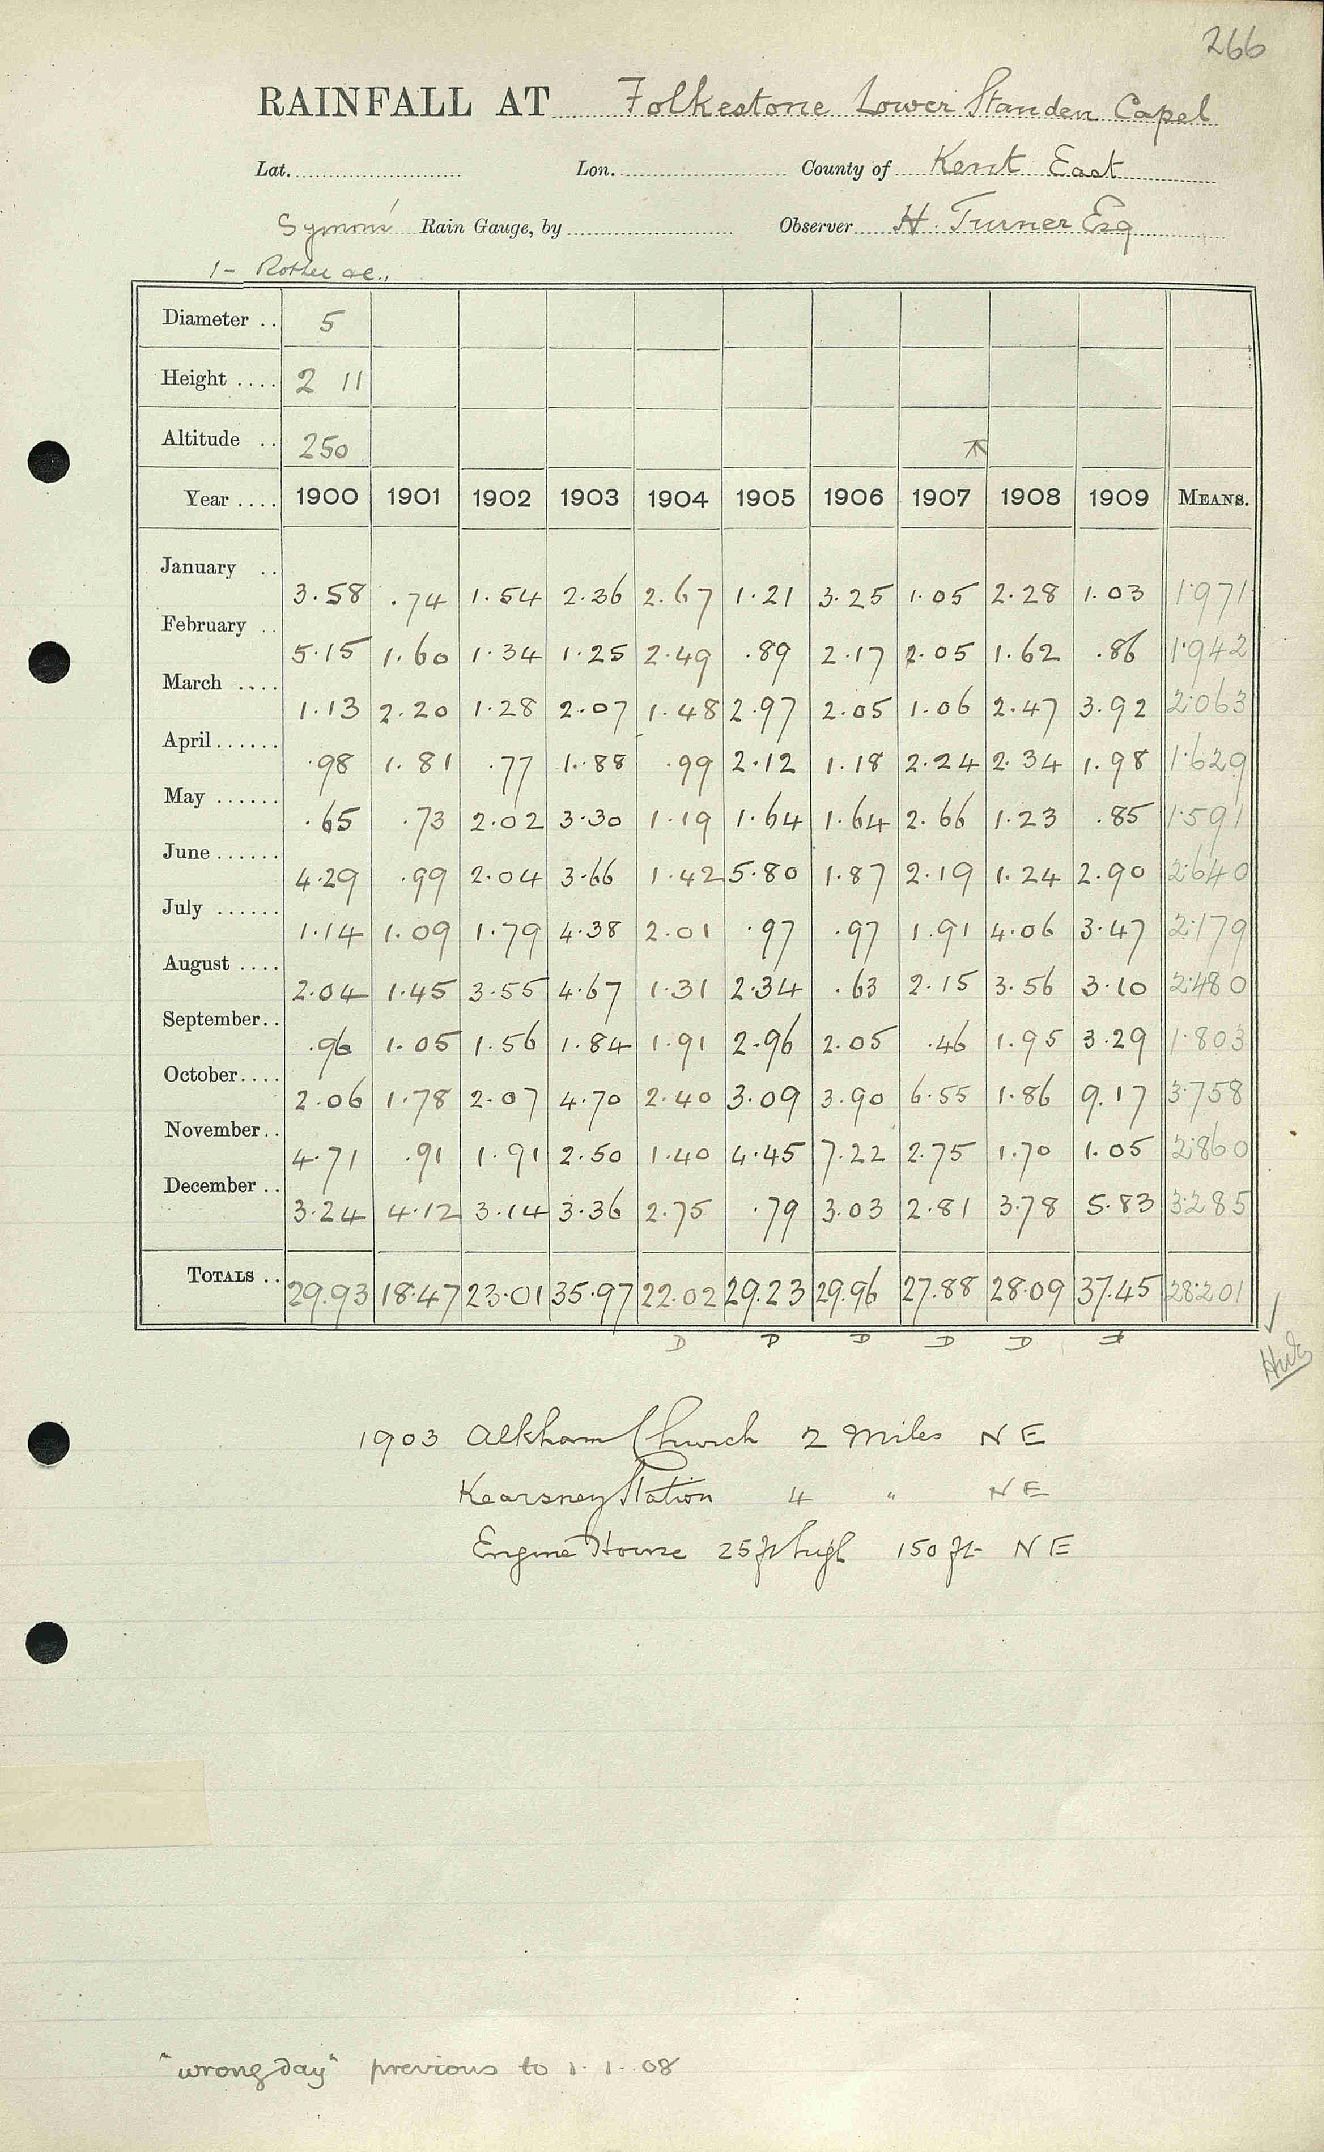 266
RAINFALL AT Folkestone Lower Standen Capel
Lat. Lon. County of Kent East
Symons' Rain Gauge, by Observer H. Turner Esq
1 - Rother &c.,
Diameter .. 5
Height .... 2 11
Altitude .. 250
Year .... 1900 1901 1902 1903 1904 1905 1906 1907 1908 1909 MEANS.
January .. 3.58 .74 1.54 2.36 2.67 1.21 3.25 1.05 2.28 1.03 1.971
February .. 5.15 1.60 1.34 1.25 2.49 .89 2.17 2.05 1.62 .86 1.942
March .... 1.13 2.20 1.28 2.07 1.48 2.97 2.05 1.06 2.47 3.92 2.063
April ...... .98 1.81 .77 1.88 .99 2.12 1.18 2.24 2.34 1.98 1.629
May ...... .65 .73 2.02 3.30 1.19 1.64 1.64 2.66 1.23 .85 1.591
June ...... 4.29 .99 2.04 3.66 1.42 5.80 1.87 2.19 1.24 2.90 2.640
July ...... 1.14 1.09 1.79 4.38 2.01 .97 .97 1.91 4.06 3.47 2.179
August .... 2.04 1.45 3.55 4.67 1.31 2.34 .63 2.15 3.56 3.10 2.480
September.. .96 1.05 1.56 1.84 1.91 2.96 2.05 .46 1.95 3.29 1.803
October.... 2.06 1.78 2.07 4.70 2.40 3.09 3.90 6.55 1.86 9.17 3.758
November.. 4.71 .91 1.91 2.50 1.40 4.45 7.22 2.75 1.70 1.05 2.860
December .. 3.24 4.12 3.14 3.36 2.75 .79 3.03 2.81 3.78 5.83 3.285
TOTALS .. 29.93 18.47 23.01 35.97 22.02 29.23 29.96 27.88 28.09 37.45 28.201
D D D D D
1903 Alkham Church 2 Miles NE
Kearsney Station 4 " NE
Engine House 25 ft high 150 ft NE
"wrong day" previous to 1.1.08